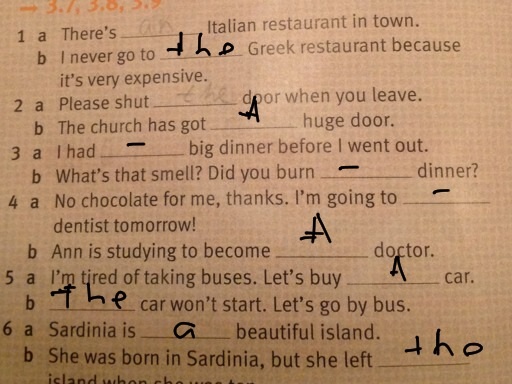 → 3.7, 3.8, 3.9
1 a There's an Italian restaurant in town.
b I never go to the Greek restaurant because
it's very expensive.
2 a Please shut the door when you leave.
b The church has got A huge door.
3 a I had – big dinner before I went out.
b What's that smell? Did you burn – dinner?
4 a No chocolate for me, thanks. I'm going to –
dentist tomorrow!
b Ann is studying to become A doctor.
5 a I'm tired of taking buses. Let's buy A car.
b The car won't start. Let's go by bus.
6 a Sardinia is a beautiful island.
b She was born in Sardinia, but she left the
island when she was